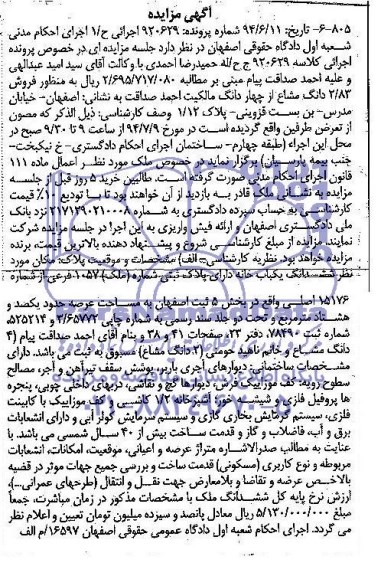 آگهی مزایده
۸۰۵-۶- تاریخ: ۹۴/۶/۱۱ شماره پرونده: ۹۲۰۶۲۹ اجرائی ح/۱ اجرای احکام مدنی
شعبه اول دادگاه حقوقی اصفهان در نظر دارد جلسه مزایده ای در خصوص پرونده
اجرائی کلاسه ۹۲۰۶۲۹ ج ح/له حمیدرضا احمدی با وکالت آقای سید امید عبدالهی
و علیه احمد صداقت پیام مبنی بر مطالبه ۲/۶۹۵/۷۱۷/۰۸۰ ریال به منظور فروش
۲/۸۳ دانگ مشاع از چهار دانگ مالکیت احمد صداقت به نشانی: اصفهان- خیابان
مدرس- بن بست قزوینی- پلاک ۱/۱۲ وصف کارشناسی: ذیل الذکر که مصون
از تعرض طرفین واقع گردیده است در مورخ ۹۴/۷/۹ از ساعت ۹ تا ۹/۳۰ صبح در
محل این اجراء (طبقه چهارم- ساختمان اجرای احکام دادگستری- خ نیکبخت-
جنب بیمه پارسیان) برگزار نماید در خصوص ملک مورد نظر اعمال ماده ۱۱۱
قانون اجرای احکام مدنی صورت گرفته است. طالبین خرید ۵ روز قبل از جلسه
مزایده به نشانی ملک قادر به بازدید از آن خواهند بود تا با تودیع ۱۰٪ قیمت
کارشناسی به حساب سپرده دادگستری به شماره ۲۱۷۱۲۹۰۲۱۰۰۰۸ نزد بانک
ملی دادگستری اصفهان و ارائه فیش واریزی به این اجرا در جلسه مزایده شرکت
نمایند. مزایده از مبلغ کارشناسی شروع و پیشنهاد دهنده بالاترین قیمت، برنده
مزایده خواهد بود. نظریه کارشناسی- الف) مشخصات و موقعیت پلاک: مکان مورد
نظر ششدانگ یکباب خانه دارای پلاک ثبتی شماره (ملک) ۱۰۵۷ فرعی از شماره
۱۵۱۷۶ اصلی واقع در بخش ۵ ثبت اصفهان به مساحت عرصه حدود یکصد و
هشتاد مترمربع و تحت دو جلد سند رسمی به شماره چاپی ۳/۶۵۷۷۲ و ۵۲۵۲۱۴،
شماره ثبت ۷۸۴۹۰ دفتر ۲۳، صفحات ۴۱ و ۳۸ و بنام آقای احمد صداقت پیام (۴
دانگ مشاع و خانم ناهید حومنی (۲ دانگ مشاع) مسبوق به ثبت می باشد. دارای
مشخصات ساختمانی: دیوارهای آجری باربر، پوشش سقف تیرآهن و آجر، مصالح
سطوح رویه: کف موزاییک فرش، دیوارها گچ و نقاشی، دربهای داخلی چوبی، پنجره
ها پروفیل فلزی و شیشه خور، آشپزخانه ۱/۲ کاشی و کف موزاییک با کابینت
فلزی، سیستم گرمایش بخاری گازی و سیستم سرمایش کولر آبی و دارای انشعابات
برق و آب، فاضلاب و گاز و قدمت ساخت بیش از ۴۰ سال شمسی می باشد. با
عنایت به مطالب صدرالاشاره متراژ عرصه و اعیانی، موقعیت، امکانات، انشعابات
مربوطه و نوع کاربری (مسکونی) قدمت ساخت و بررسی جمیع جهات موثر در قضیه
بالاخص عرضه و تقاضا و بلامعارض جهت نقل و انتقال (طرحهای عمرانی...)،
ارزش نرخ پایه کل ششدانگ ملک با مشخصات مذکور در زمان مباشرت، جمعاً
مبلغ ۵/۱۳۰/۰۰۰/۰۰۰ ریال معادل پانصد و سیزده میلیون تومان تعیین و اعلام نظر
می گردد. اجرای احکام شعبه اول دادگاه عمومی حقوقی اصفهان ۱۶۵۹۷/م الف